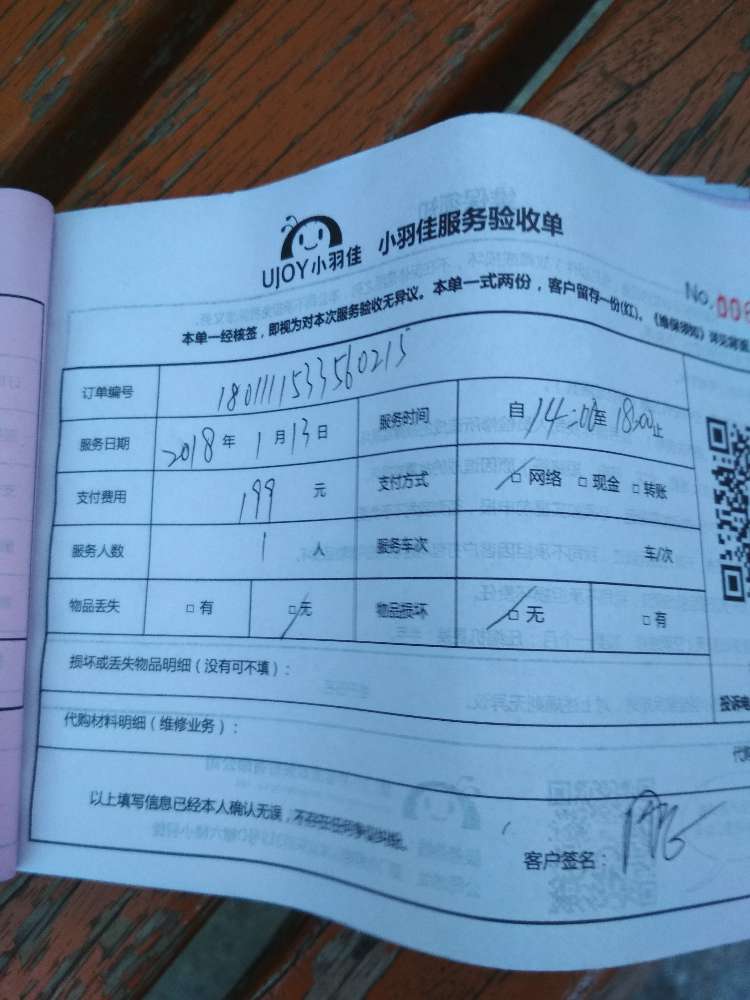 UJOY小羽佳 小羽佳服务验收单
No. 00
本单一经核签，即视为对本次服务验收无异议。本单一式两份，客户留存一份(红)。《维保须知》详见背面
订单编号 1801111533560215
服务日期 2018 年 1 月 13 日 服务时间 自 14:00 至 18:00 止
支付费用 199 元 支付方式 □ 网络 □ 现金 □ 转账
服务人数 1 人 服务车次 车/次
物品丢失 □ 有 □ 无 物品损坏 □ 无 □ 有
损坏或丢失物品明细（没有可不填）：
投诉电
代购材料明细（维修业务）：
代购
以上填写信息已经本人确认无误，不存在任何争议纠纷。
客户签名：